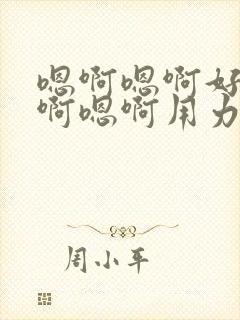 嗯啊嗯啊好
啊嗯啊用力
周小平